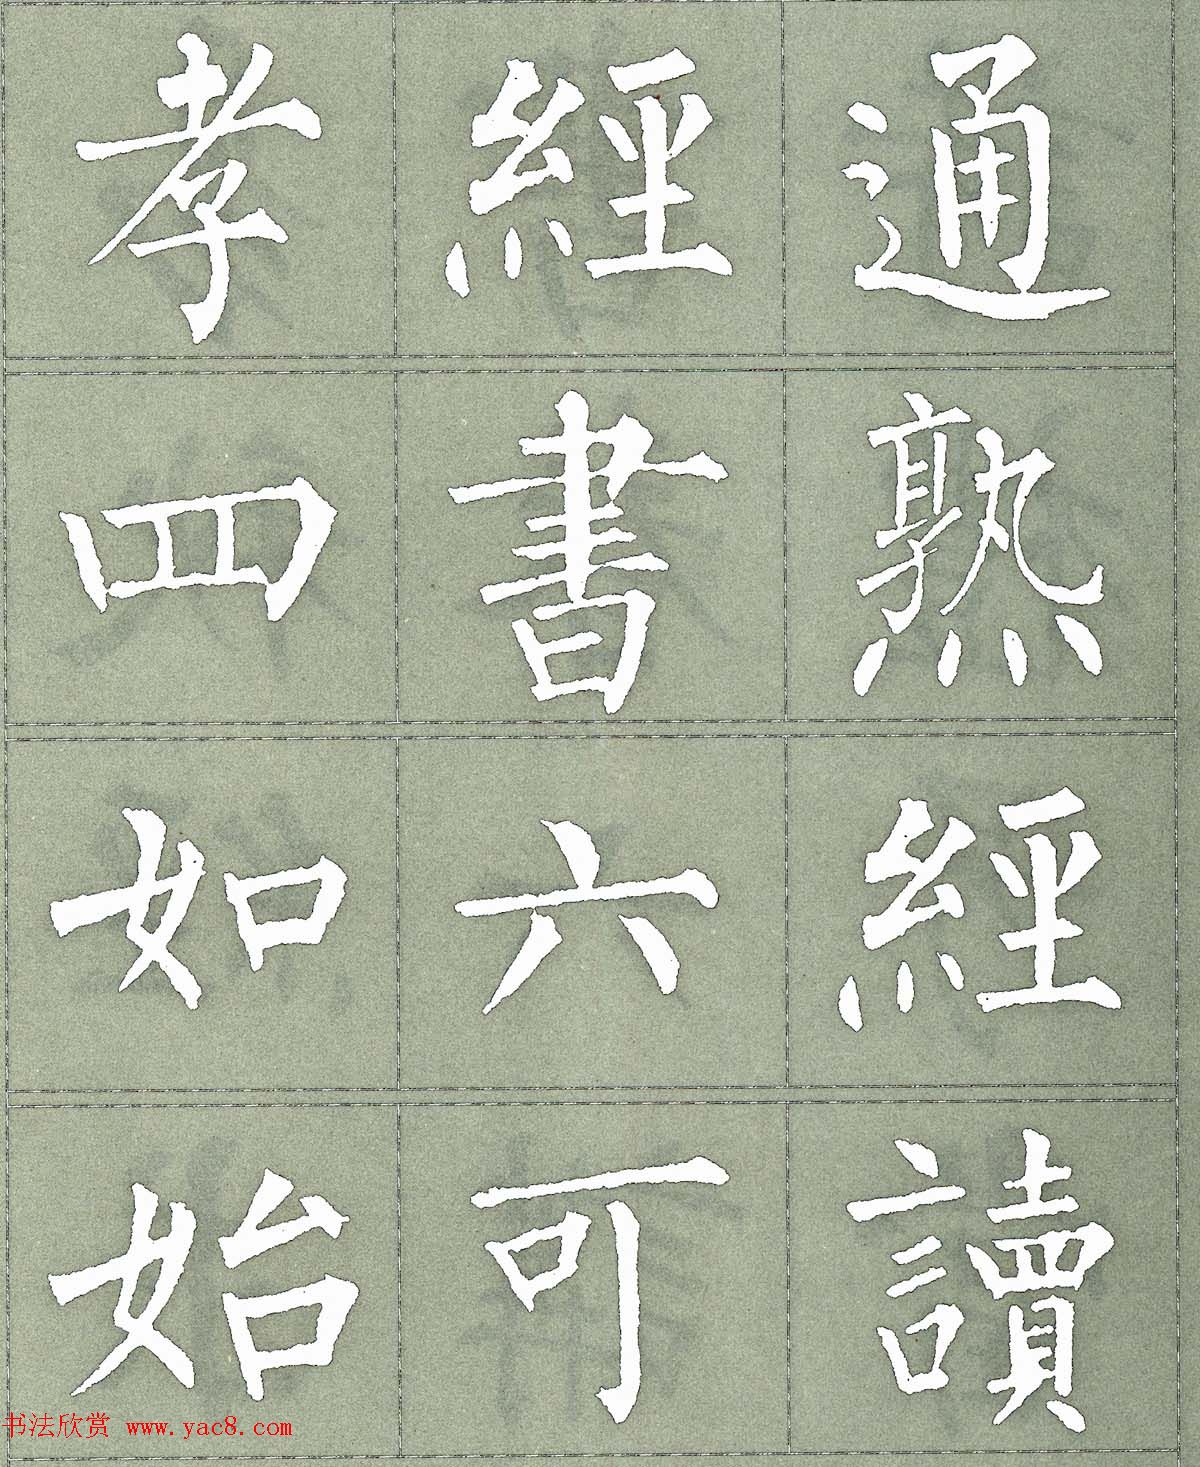 孝經通
四書熟
如六經
始可讀
书法欣赏 www.yac8.com